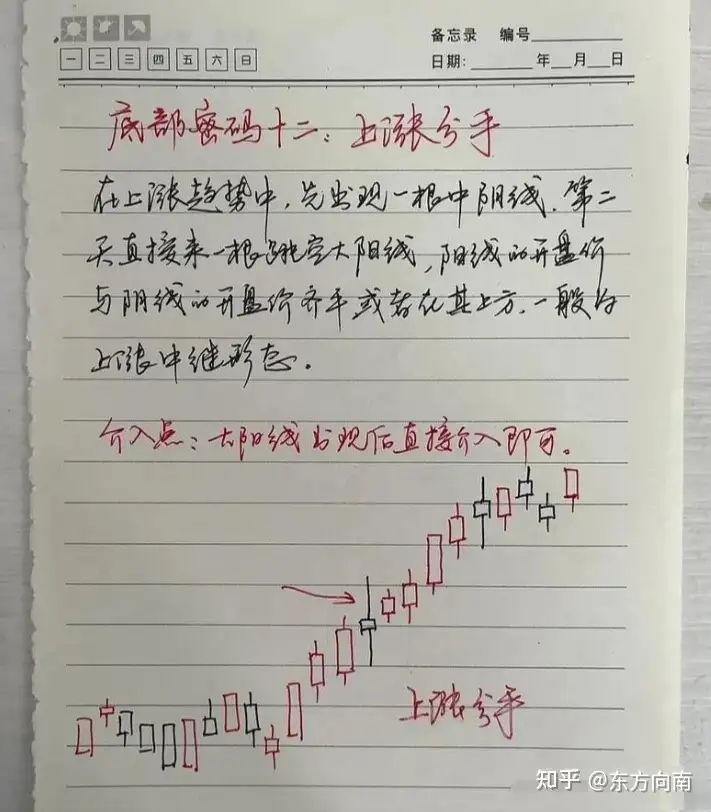 备忘录 编号
一 二 三 四 五 六 日
日期： 年 月 日
底部密码十二：上涨分手
在上涨趋势中，先出现一根中阴线，第二
天直接来一根跳空大阳线，阳线的开盘价
与阴线的开盘价齐平或者在其上方，一般为
上涨中继形态。
介入点：大阳线出现后直接介入即可。
上涨分手
知乎 @东方向南